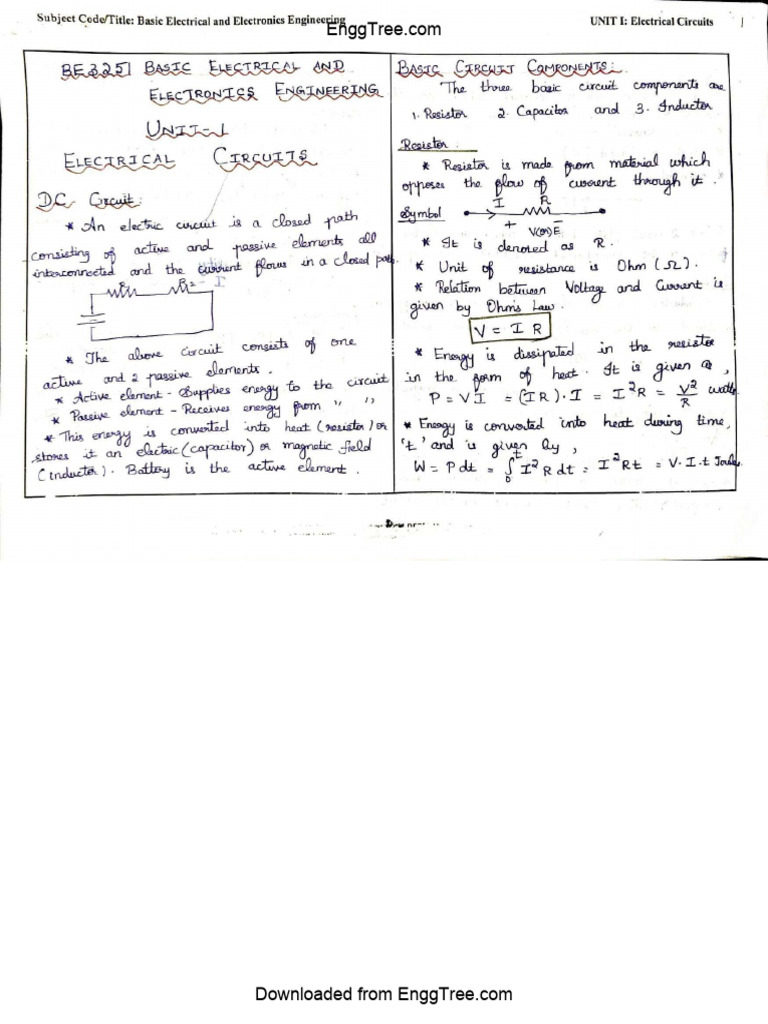 Subject Code/Title: Basic Electrical and Electronics Engineering
EnggTree.com
UNIT I: Electrical Circuits
1
BE3251 BASIC ELECTRICAL AND
ELECTRONICS ENGINEERING
UNIT-1
ELECTRICAL CIRCUITS
DC Circuit:
* An electric circuit is a closed path
consisting of active and passive elements all
interconnected and the current flows in a closed path.
R1 R2 I
* The above circuit consists of one
active and 2 passive elements.
* Active element - Supplies energy to the circuit
* Passive element - Receives energy from " "
* This energy is converted into heat (resistor) or
stores it an electric (capacitor) or magnetic field
(inductor). Battery is the active element.
BASIC CIRCUIT COMPONENTS:
The three basic circuit components are
1. Resistor 2. Capacitor and 3. Inductor
Resistor:
* Resistor is made from material which
opposes the flow of current through it.
I R
Symbol
+ V(or)E -
* It is denoted as R.
* Unit of resistance is Ohm (Ω).
* Relation between Voltage and Current is
given by Ohm's Law.
V = I R
* Energy is dissipated in the resistor
in the form of heat. It is given as,
P = VI = (IR).I = I²R = V²/R watts
* Energy is converted into heat during time,
't' and is given by,
W = Pdt = ∫₀ᵗ I²Rdt = I²Rt = V.I.t Joules
Downloaded from EnggTree.com